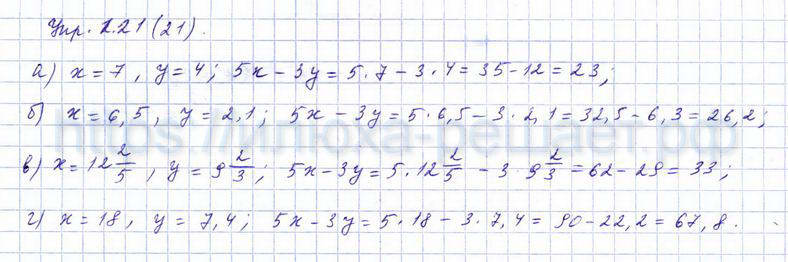 Упр. 1.21 (21).
а) x = 7, y = 4; 5x - 3y = 5 · 7 - 3 · 4 = 35 - 12 = 23;
б) x = 6,5, y = 2,1; 5x - 3y = 5 · 6,5 - 3 · 2,1 = 32,5 - 6,3 = 26,2;
в) x = 12 2/5, y = 9 2/3; 5x - 3y = 5 · 12 2/5 - 3 · 9 2/3 = 62 - 29 = 33;
г) x = 18, y = 7,4; 5x - 3y = 5 · 18 - 3 · 7,4 = 90 - 22,2 = 67,8.